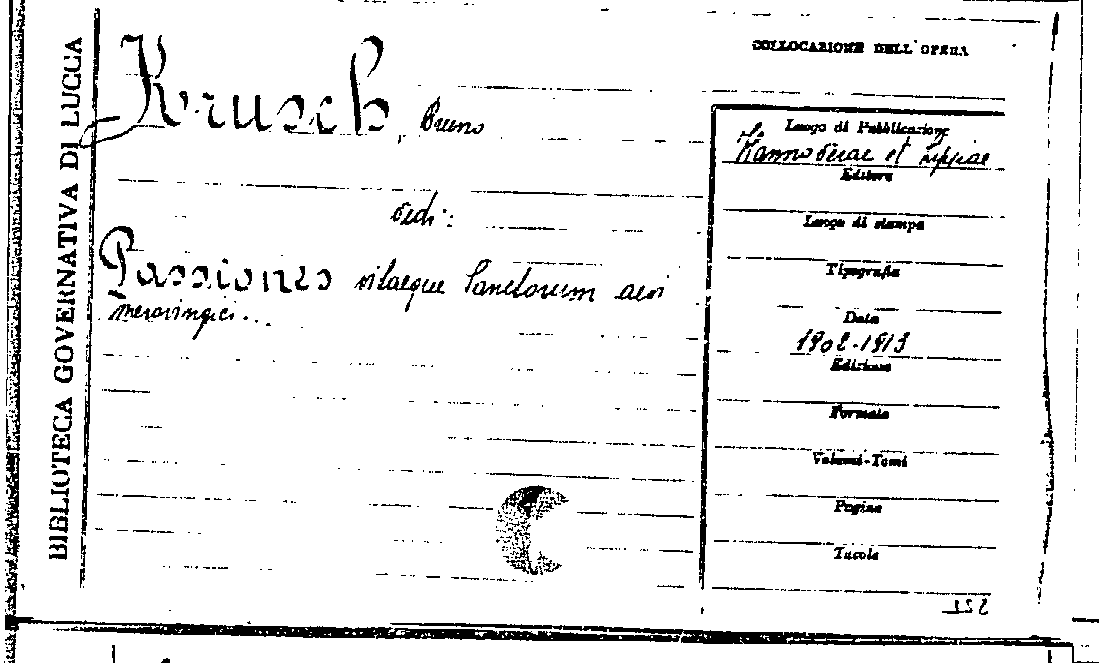 BIBLIOTECA GOVERNATIVA DI LUCCA
COLLOCAZIONE DELL'OPERA
Krusch, Bruno
vedi:
Passiones vitaeque Sanctorum aevi
merovingici...
Luogo di Pubblicazione
Hannoverae et Lipsiae
Editore
Luogo di stampa
Tipografia
Data
1902-1913
Edizione
Formato
Volumi-Tomi
Pagine
Tavole